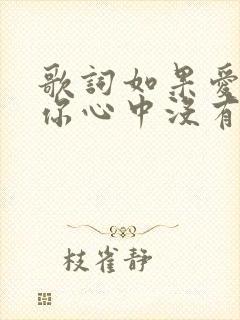 歌詞如果愛
你心中沒有
枝雀靜